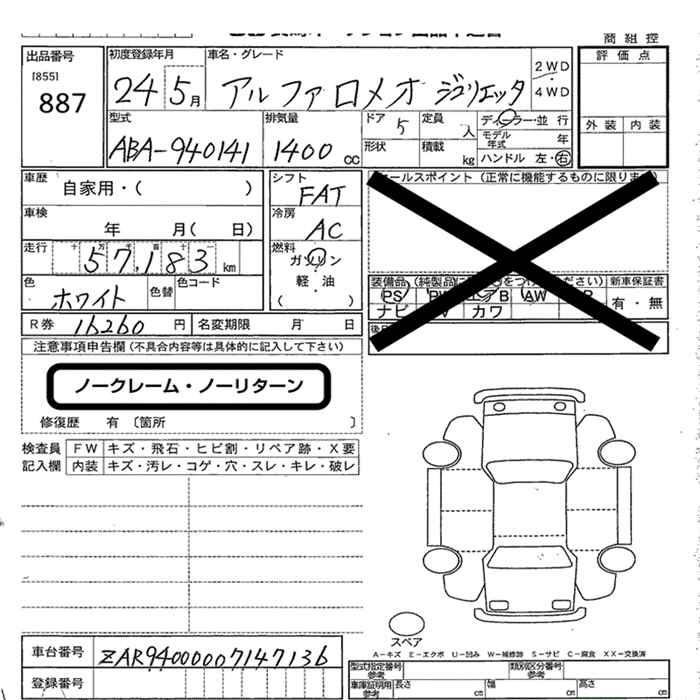 商組控
出品番号
[855]
887
初度登録年月
24 5月
車名・グレード
アルファロメオ ジュリエッタ
2WD
・
4WD
評価点
外装 内装
型式
ABA-940141
排気量
1400cc
ドア 5
形状
定員 人
積載 kg
ディーラー・並行
モデル年式 年
ハンドル 左・右
車歴
自家用・( )
シフト
FAT
車検
年 月( 日)
冷房
AC
走行
十 万 千 百 十 一
57,183km
燃料
ガソリン
軽・油
( )
色
ホワイト
色替
色コード
R券 16260円
名変期限 月 日
セールスポイント(正常に機能するものに限ります)
装備品(純製品に○をつけてください)
新車保証書
PS エアB AW
ナビ カワ
有・無
注意事項申告欄(不具合内容等は具体的に記入して下さい)
ノークレーム・ノーリターン
修復歴 有〔箇所 〕
検査員記入欄
FW キズ・飛石・ヒビ割・リペア跡・X要
内装 キズ・汚レ・コゲ・穴・スレ・キレ・破レ
スペア
A-キズ E-エクボ U-凹み W-補修跡 S-サビ C-腐食 XX-交換済
車台番号
ZAR94000007147136
登録番号
型式指定番号 参考
類別区分番号 参考
車庫証明用 参考
長さ cm
幅 cm
高さ cm